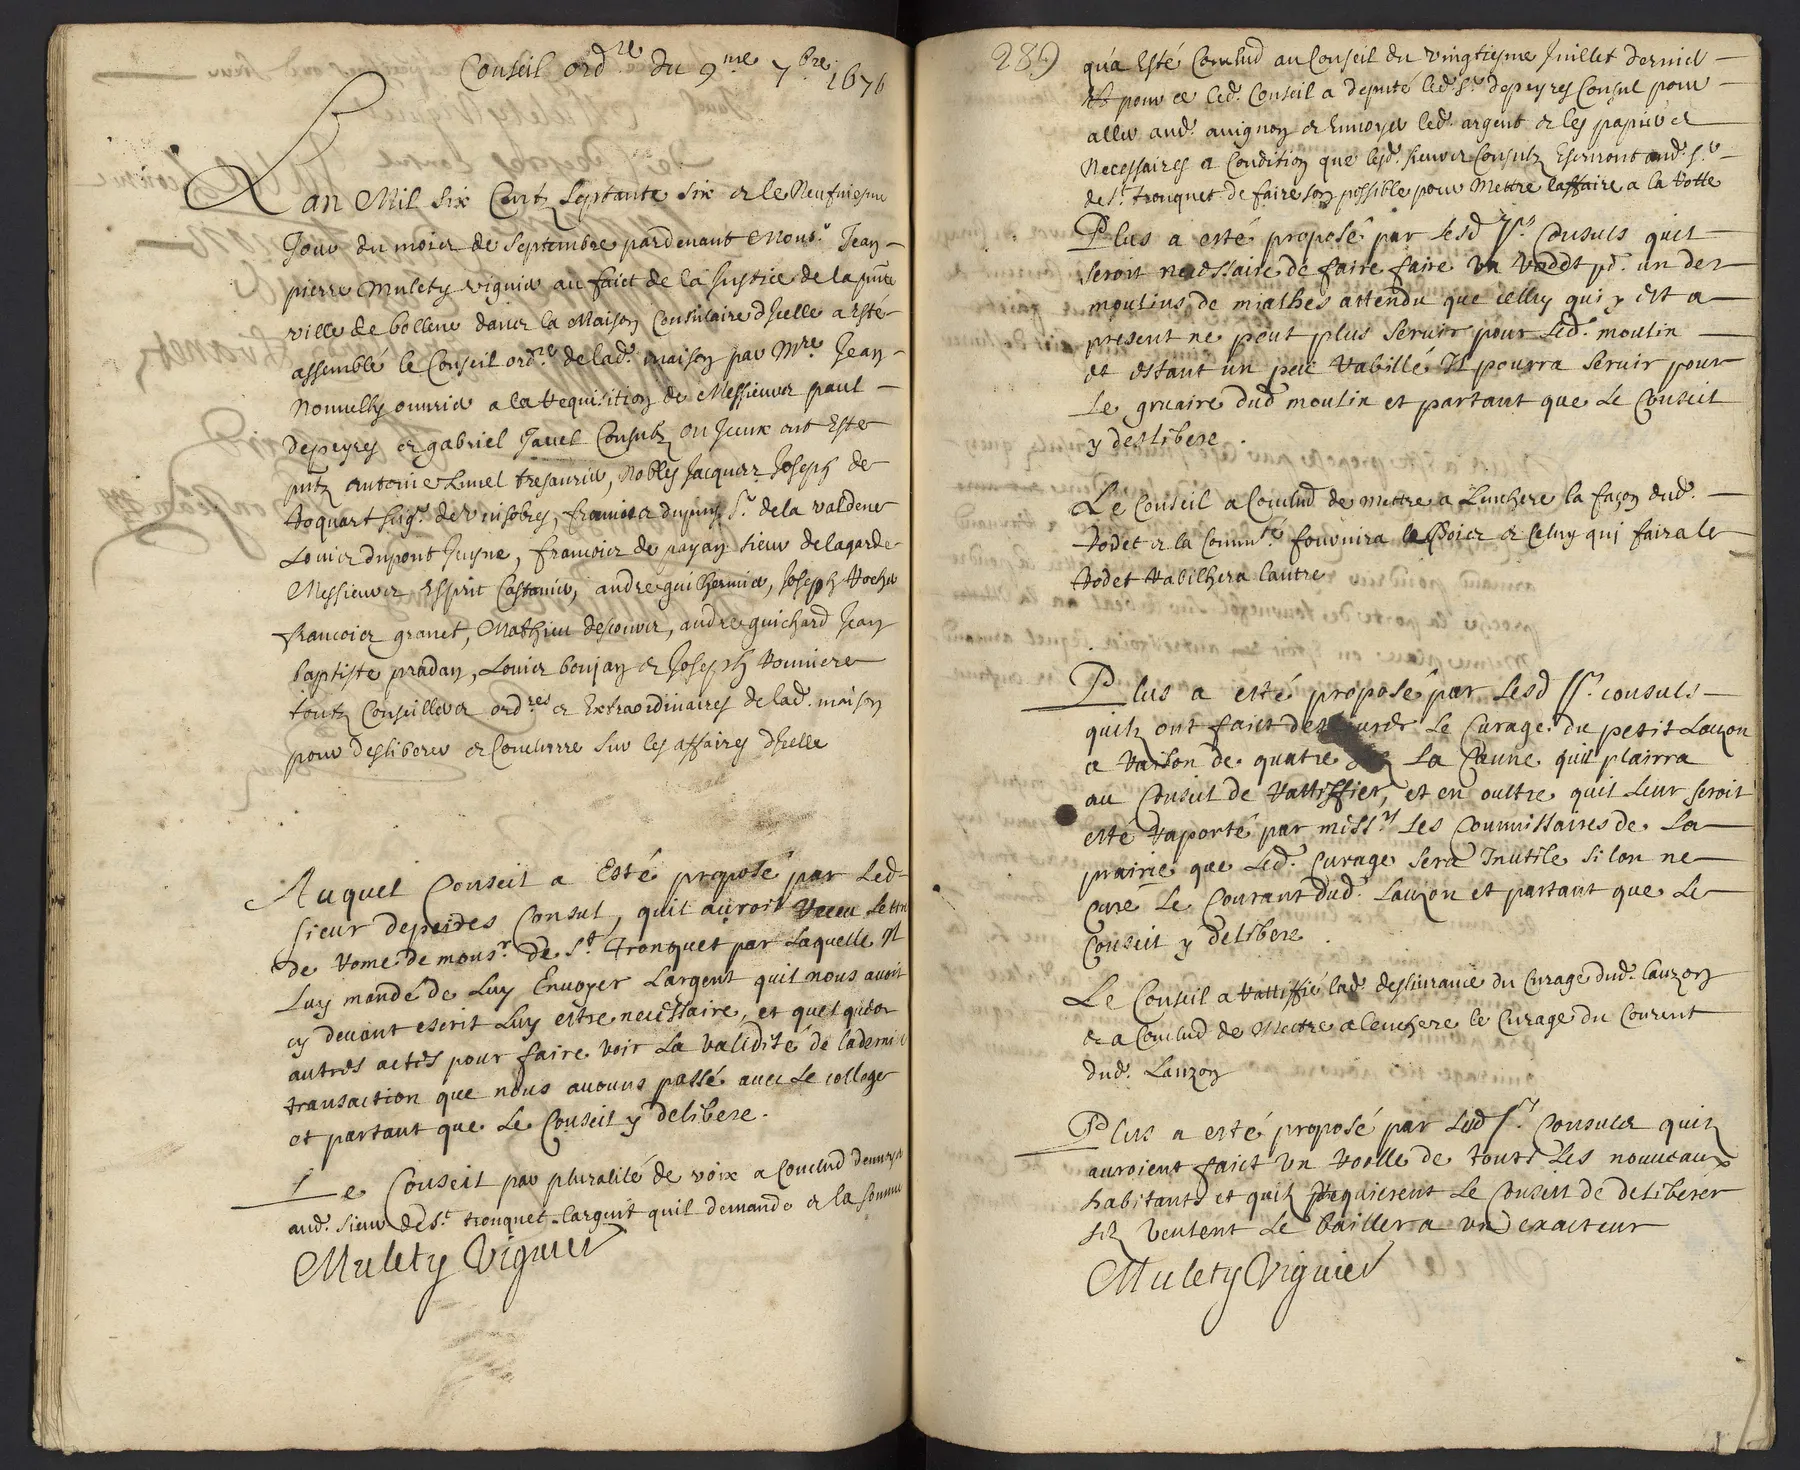 Conseil ord.re du 9me 7bre 1676
Lan Mil Six Cent Septante Six et le Neufviesme
Jour du mois de Septembre pardevant Monsr Jean
pierre Mulety viguier au faict de la Justice de la pnte
ville de bollene dans la Maison Consulaire dicelle a esté
assemblé le Conseil ordre de lad. maison par Mre Jean
a la requisition de Messieurs paul
depeyres et gabriel Javel Consulz ou Jceux ont Esté
pntz antoine Limel tresaurier, Nobles Jacques Joseph de
Roquart Seigr de vinsobres, francois dupuy Sr de la valdene
Louis dupont Juyne, francois de payan sieur de lagarde
Messieurs Esprit Castanier, andre guilhermier, Joseph Rocher
francois granet, Mathieu descouvr, andre guichard Jean
baptiste pradan, Louis boujan et Joseph Roumiere
toutz Conseillers ordres et Extraordinaires de lad. maison
pour desliberer et Conclurre Sur les affaires dicelle
Auquel Conseil a Esté proposé par Led
sieur depeires Consul, quil auroit Receu Lettre
de Rome de monsr de St tronquet par Laquelle Il
Luy mande de Luy Envoyer Largent quil nous avoit
cy devant escrit Luy estre necessaire, et quelques
autres actes pour faire voir La validité de la derniere
transaction que nous avouns passé avec Le college
et partant que Le Conseil y delibere.
Le Conseil par pluralité de voix a Conclud denvoyer
aud. Sieur de St tronquet Largent quil demande et la somme
Mulety Viguier
289
qua Esté Conclud au Conseil du vingtiesme Juillet dernier
Et pour ce led. Conseil a deputé led. Sr depeyres Consul pour
aller aud. avignon et Envoyer led. argent et les papiers
Necessaires a Condition que lesd. sieurs Consulz Escriront aud. Sr
de St tronquet de faire son possible pour Mettre laffaire a la Rotte
Plus a esté proposé par Lesd Srs Consuls quil
seroit necessaire de faire faire un Roddt pr un des
moulins de mialhes attendu que celluy qui y est a
present ne peut plus Servir pour Led. moulin
et estant un peu Rabillé Il pourra servir pour
Le gruaire dud moulin et partant que Le Conseil
y deslibere.
Le Conseil a Conclud de mettre a Lenchere la façon dud.
Rodet et la Commté fournira le Bois et Celuy qui faira le
Rodet Rabilhera lautre
Plus a esté proposé par Lesd Srs consuls
quilz ont faict Le Curage du petit Lauzon
a Raison de quatre La Canne quil plairra
au Conseil de Rattiffier, et en oultre quil Leur seroit
esté Raporté par missrs Les Commissaires de La
prairie que Led. Curage sera Inutile si lon ne
Cure Le Courant dud. Lauzon et partant que Le
Conseil y delibere
Le Conseil a Rattiffié lad. deslivrance du Curage dud. Lauzon
et a Conclud de Mettre a lenchere le Curage du Courent
dud. Lauzon
Plus a esté proposé par Lesd Srs Consuls quilz
auroient faict un Roolle de touts Les nouveaux
habitants et quilz Requierent Le Conseil de deliberer
silz veulent Le bailler a un exacteur
Mulety Viguier